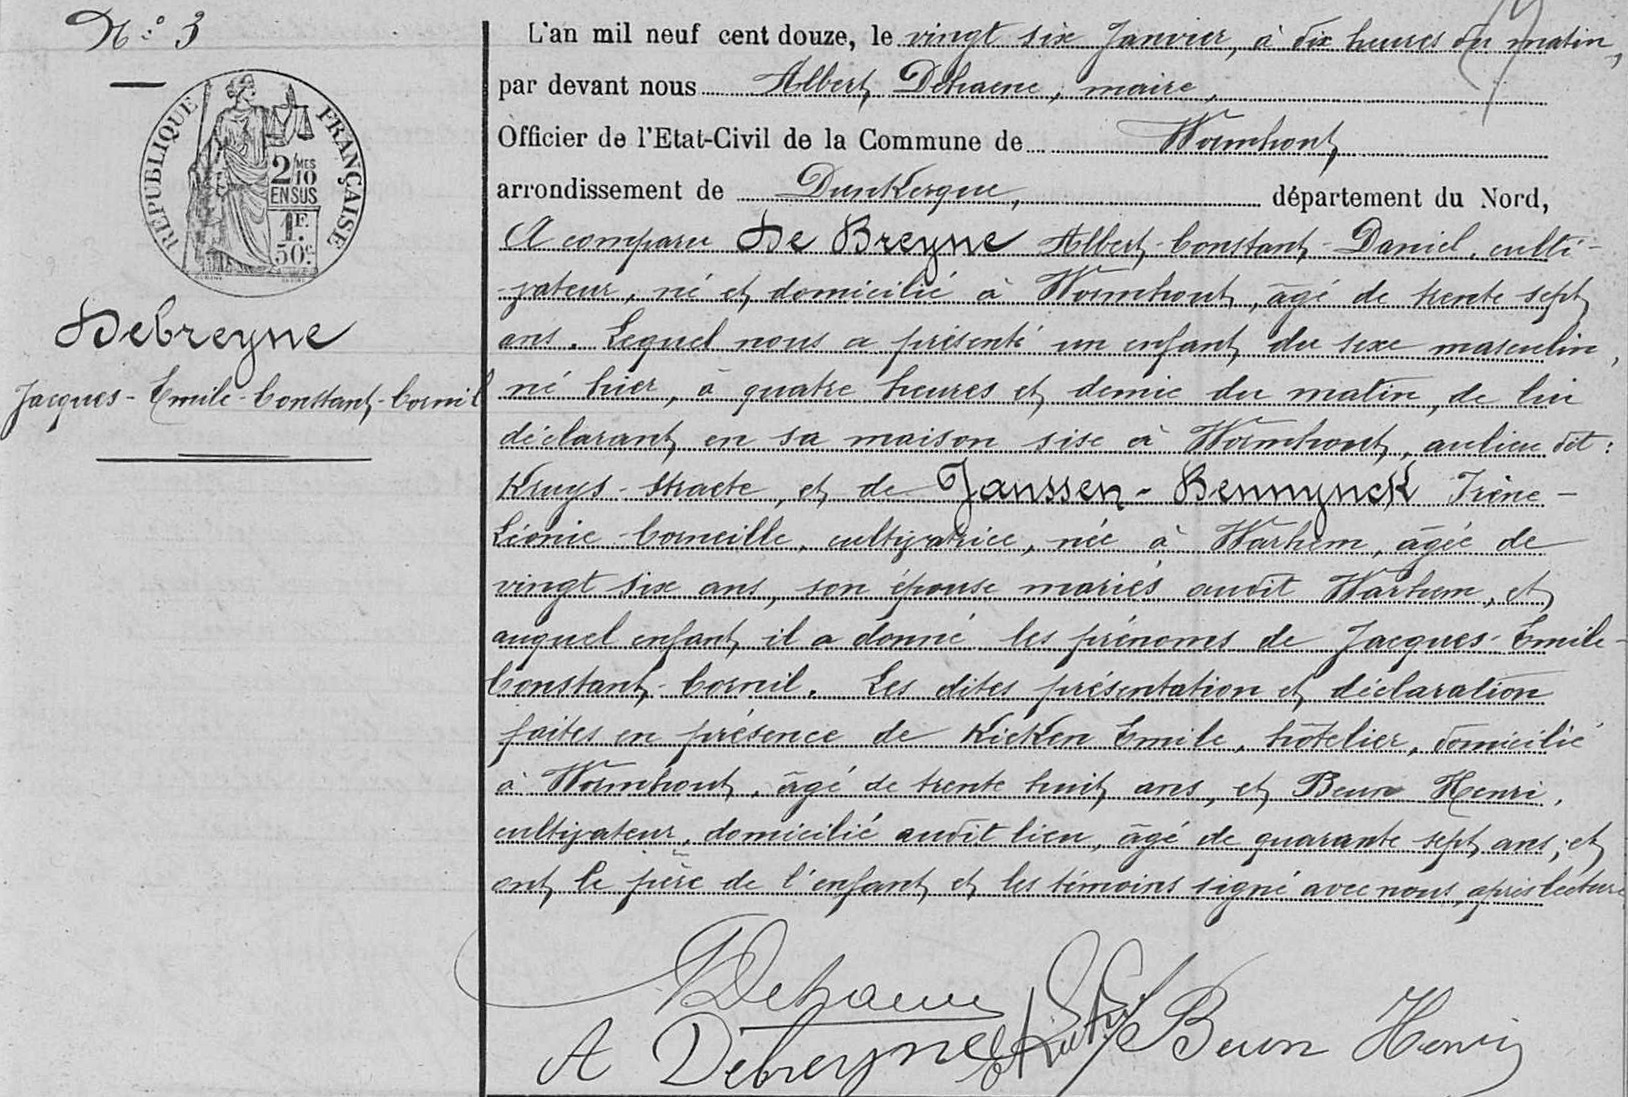 N.° 3
RÉPUBLIQUE FRANÇAISE
2/10 MES
EN SUS
1F.
50c.
Debreyne
Jacques-Emile-Constant-Cornil
L'an mil neuf cent douze, le vingt six Janvier, à dix heures du matin,
par devant nous Albert Dehaene, maire,
Officier de l'Etat-Civil de la Commune de Wormhout,
arrondissement de Dunkerque, département du Nord,
A comparu De Breyne Albert-Constant-Daniel, culti-
-vateur, né et domicilié à Wormhout, âgé de trente sept
ans. Lequel nous a présenté un enfant du sexe masculin,
né hier, à quatre heures et demie du matin, de lui
déclarant, en sa maison sise à Wormhout, au lieu dit:
Kruys-Straete, et de Janssen-Bennynck Irène-
Léonie-Corneille, cultivatrice, née à Warhem, âgée de
vingt six ans, son épouse mariés audit Warhem, et
auquel enfant, il a donné les prénoms de Jacques-Emile-
Constant-Cornil. Les dites présentation et déclaration
faites en présence de Kieken Emile, hôtelier, domicilié
à Wormhout, âgé de trente huit ans, et Beun Henri,
cultivateur, domicilié audit lieu, âgé de quarante sept ans; et
ont le père de l'enfant et les témoins signé avec nous, après lecture
Dehaene
A Debreyne Beun Henri